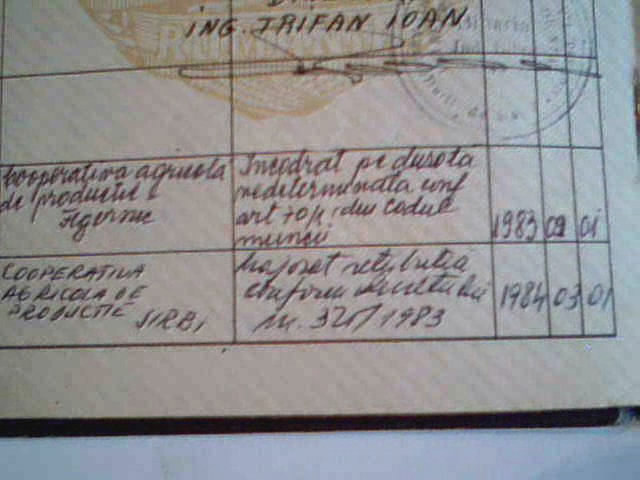 ING. TRIFAN IOAN
Cooperativa agricola
de productie
Incadrat pe durata
nedeterminata conf
art
codul
muncii
1983 09 01
COOPERATIVA
AGRICOLA DE
PRODUCTIE SIRBI
Majorat retributia
conform decretului
nr. 1983
1984 03 01